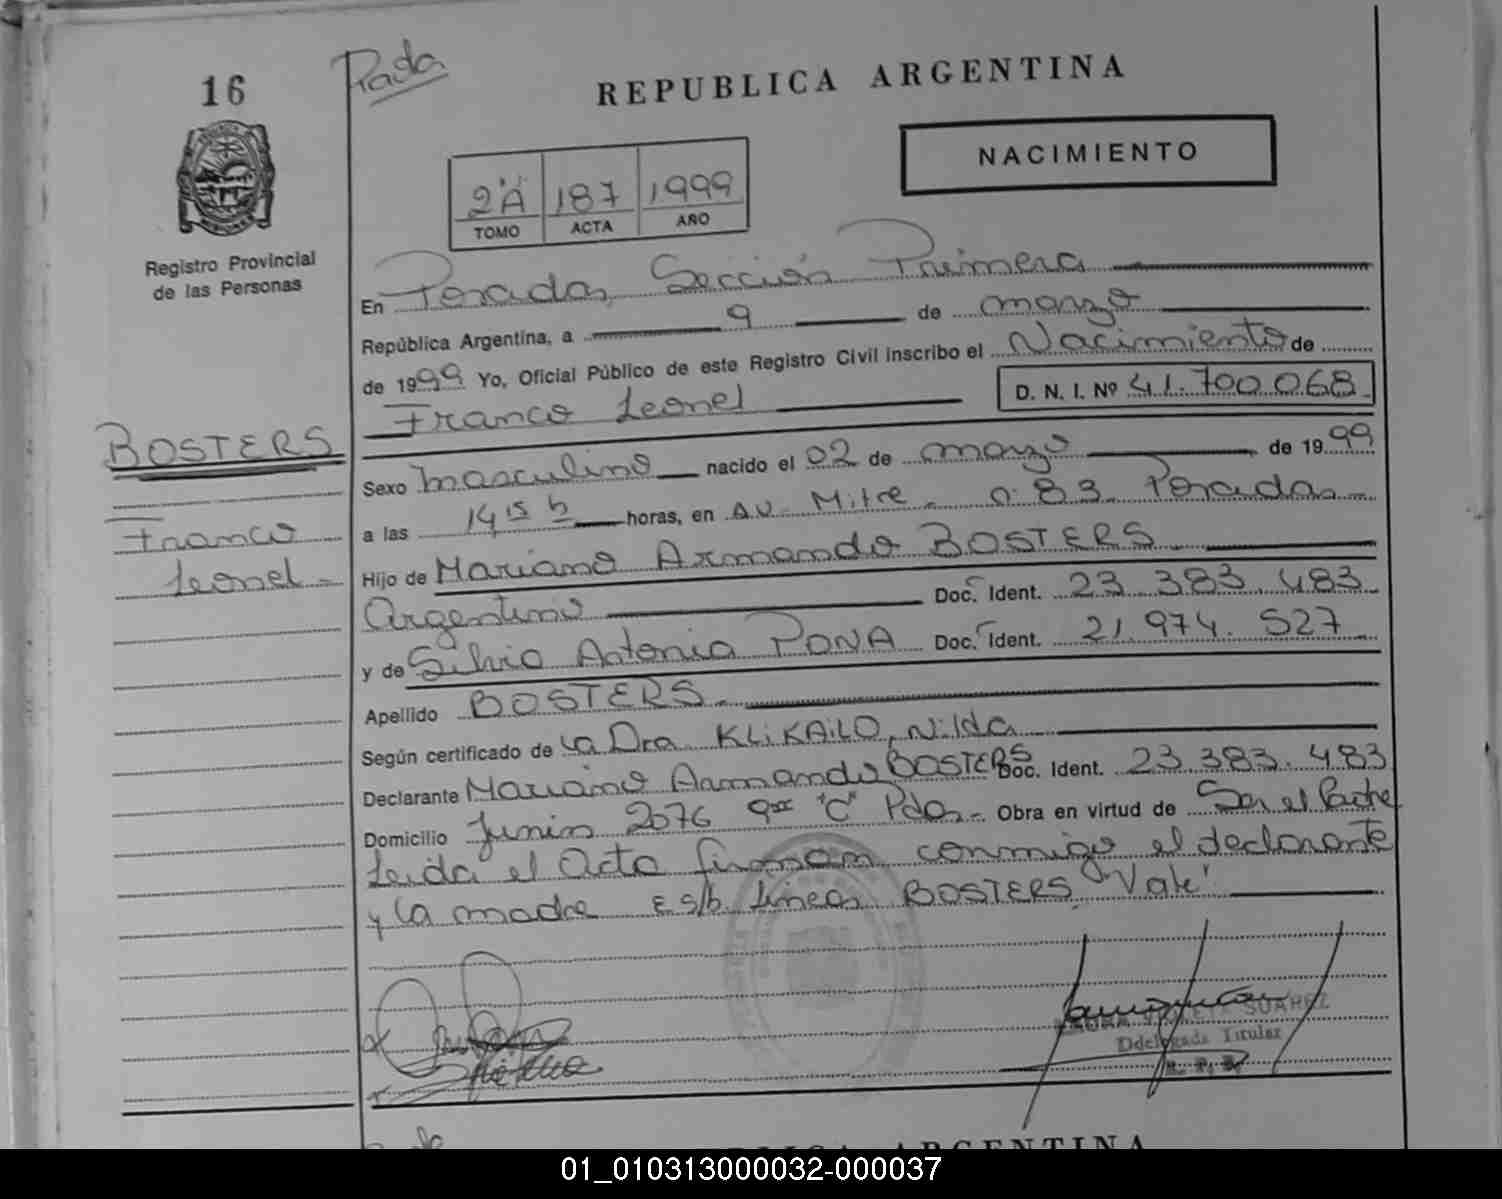 16
Pada
REPUBLICA ARGENTINA
NACIMIENTO
2º"A" 187 1999
TOMO ACTA AÑO
Registro Provincial
de las Personas
En Posadas, Sección Primera
República Argentina, a 9 de marzo
de 1999 Yo, Oficial Público de este Registro Civil inscribo el Nacimiento de
Franco Leonel D. N. I. Nº 41.700.068
BOSTERS
Franco
Leonel
Sexo masculino nacido el 02 de marzo de 1999
a las 14,15 h horas, en Av. Mitre nº 83 Posadas
Hijo de Mariano Armando BOSTERS
Argentino Doc. Ident. 23.383.483
y de Silvia Antonia PONA Doc. Ident. 21.974.527
Apellido BOSTERS
Según certificado de la Dra KLIKAILO, Nilda
Declarante Mariano Armando BOSTERS Doc. Ident. 23.383.483
Domicilio Junin 2076 9no "C" Pdas. Obra en virtud de Ser el Padre
Leida el Acta firman conmigo el declarante
y la madre E s/b lineas BOSTERS "Vale"
SUAREZ
Titular
REPUBLICA ARGENTINA
01_010313000032-000037